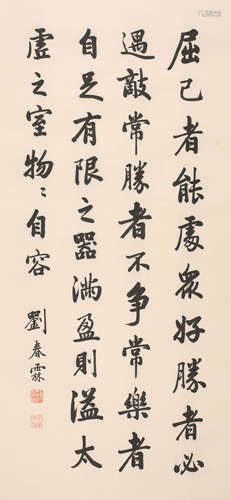 屈己者能處眾好勝者必
遇敵常勝者不争常樂者
自足有限之器滿盈則溢太
虛之室物〻自容
劉春霖